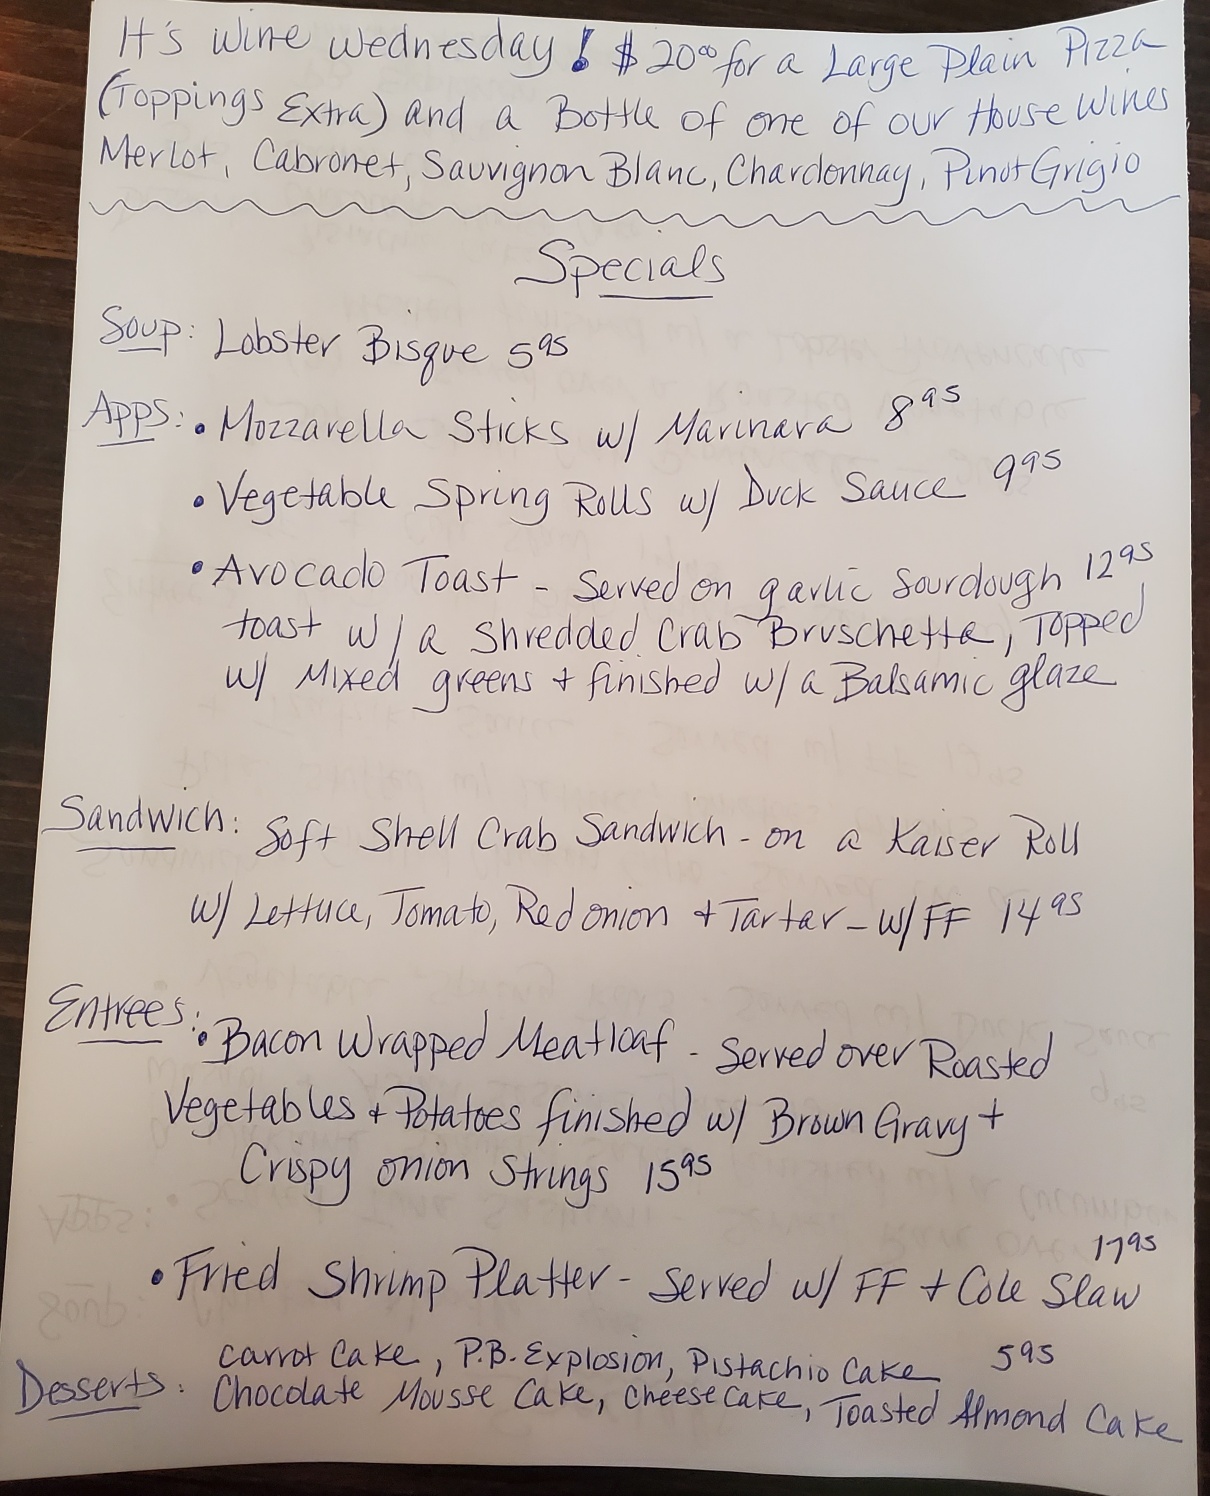 It's Wine Wednesday! $20⁰⁰ for a Large Plain Pizza
(Toppings Extra) and a Bottle of one of our House Wines
Merlot, Cabronet, Sauvignon Blanc, Chardonnay, Pinot Grigio
Specials
Soup: Lobster Bisque 5⁹⁵
Apps: • Mozzarella Sticks w/ Marinara 8⁹⁵
• Vegetable Spring Rolls w/ Duck Sauce 9⁹⁵
• Avocado Toast - Served on garlic Sourdough 12⁹⁵
toast w/ a Shredded Crab Bruschetta, Topped
w/ Mixed greens + finished w/ a Balsamic glaze
Sandwich: Soft Shell Crab Sandwich - on a Kaiser Roll
w/ Lettuce, Tomato, Red onion + Tartar - w/ FF 14⁹⁵
Entrees: • Bacon Wrapped Meatloaf - Served over Roasted
Vegetables + Potatoes finished w/ Brown Gravy +
Crispy onion Strings 15⁹⁵
17⁹⁵
• Fried Shrimp Platter - Served w/ FF + Cole Slaw
Carrot Cake, P.B. Explosion, Pistachio Cake 5⁹⁵
Desserts: Chocolate Mousse Cake, Cheese Cake, Toasted Almond Cake